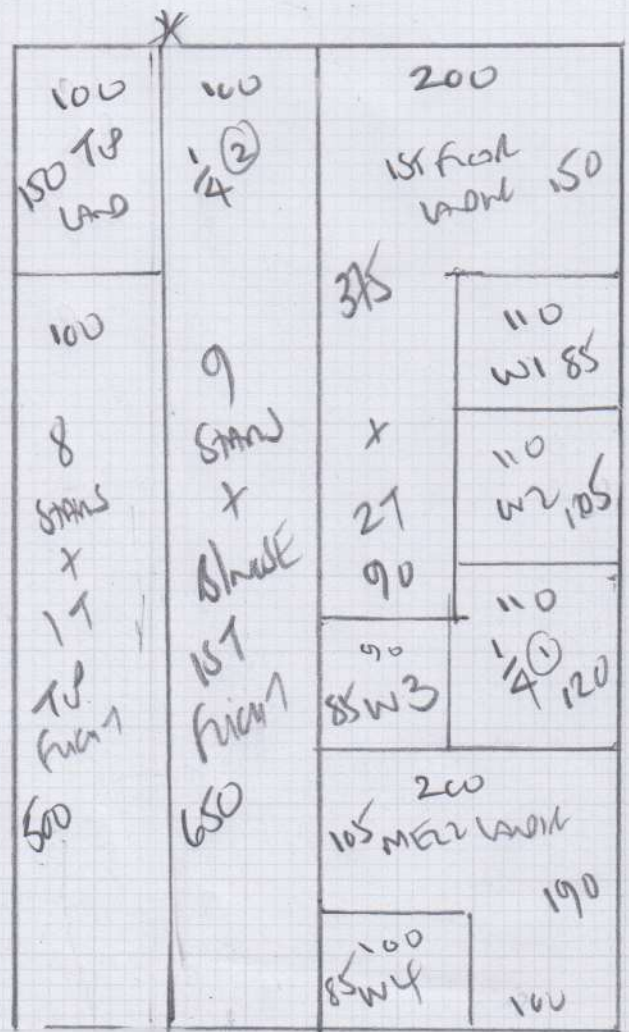 *
100
150 TP
LAND
100
8
STAIRS
+
1T
TP
FLIGHT
500
100
1/4 ②
9
STAIRS
+
B/NOSE
1ST
FLIGHT
650
200
1ST FLOOR
LANDING 150
375
+
2T
90
110
W1 85
110
W2 105
110
1/4 ① 120
90
85 W3
200
105 MEZZ LANDING
190
100
85 W4
100